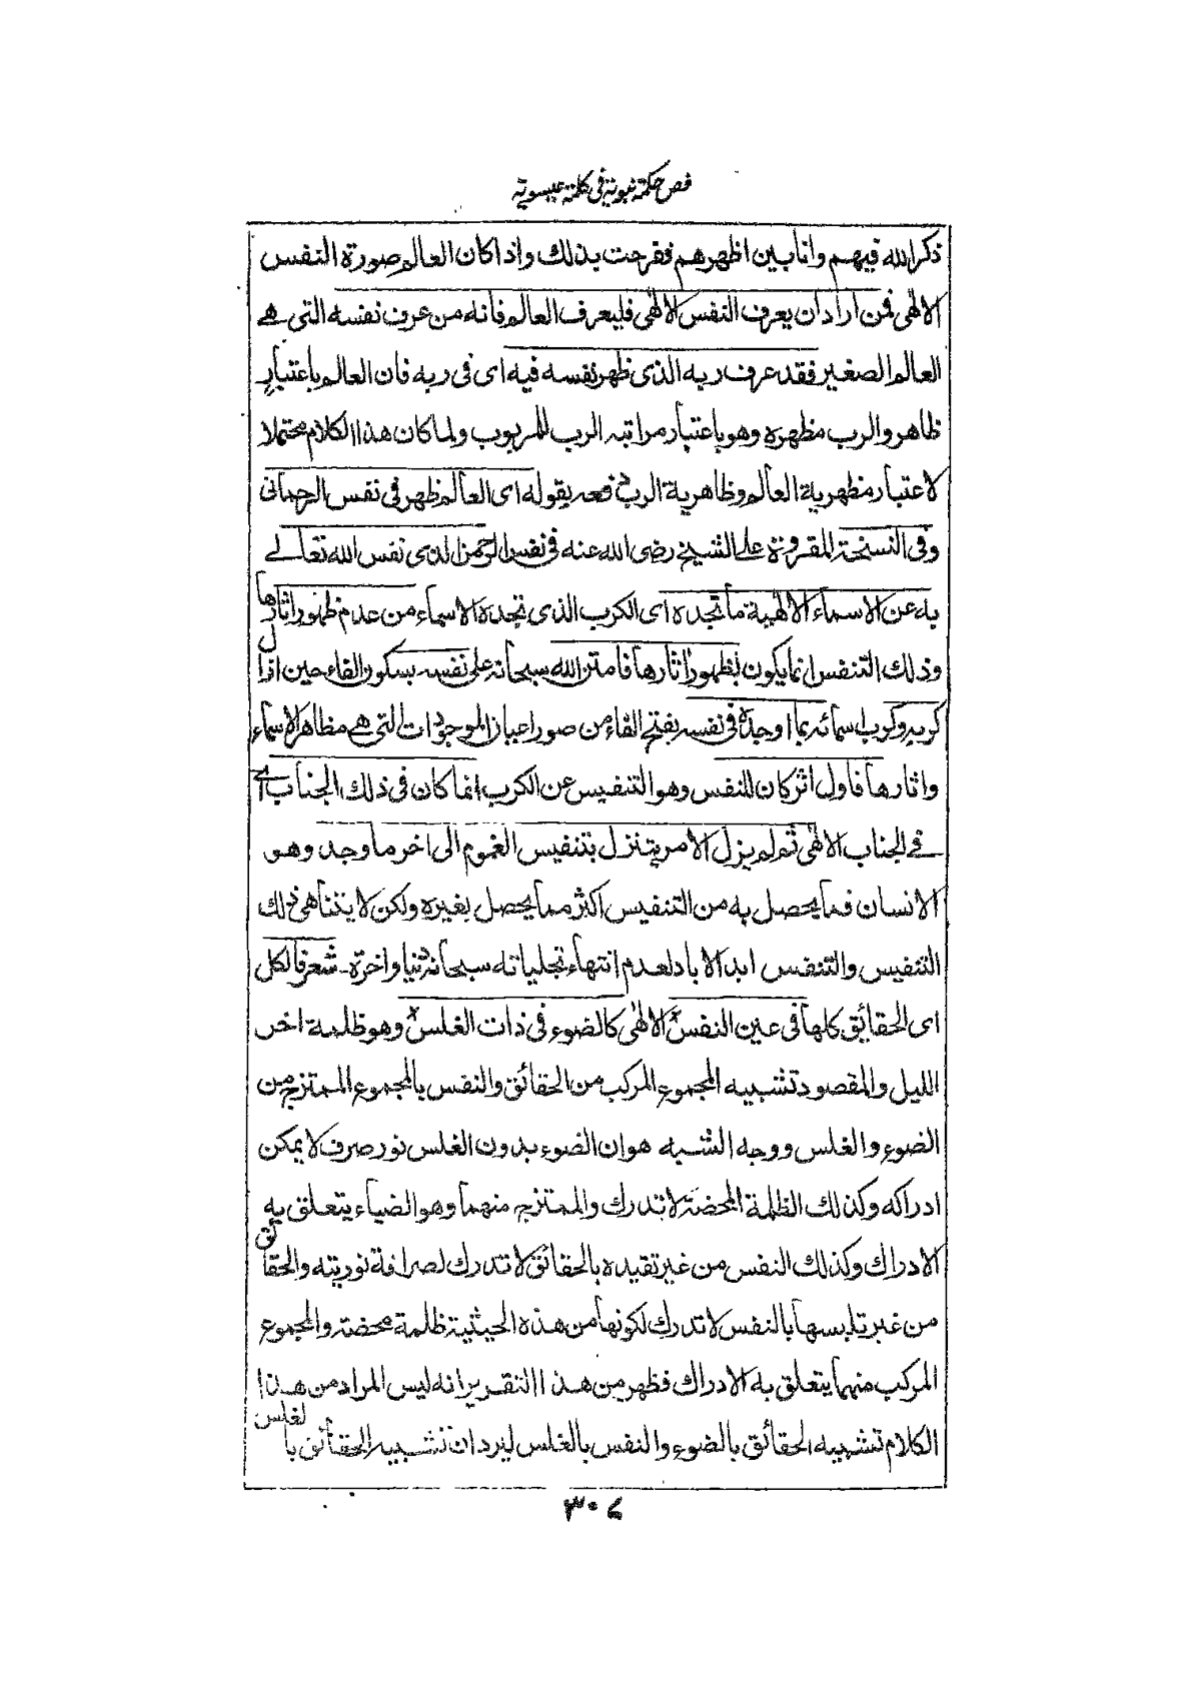 فص حكمة نبوية في كلمة عيسوية
ذكر الله فيهم وانا بين اظهرهم ففرحت بذلك واذا كان العالم صورة النفس
الالهى فمن اراد ان يعرف النفس الالهى فليعرف العالم فانه من عرف نفسه التى هى
العالم الصغير فقد عرف ربه الذى ظهر نفسه فيه اى فى ربه فان العالم باعتبار
ظاهر والرب مظهره وهو باعتبار مراتبه الرب للمربوب ولما كان هذا الكلام محتملا
لاعتبار مظهرية العالم وظاهرية الرب بقوله اى العالم ظهر فى نفس الرحمانى
وفى النسخة المقروة على الشيخ رضى الله عنه فى نفس الرحمن الذى نفس الله تعالے
به عن الاسماء الالهية ما تجده اى الكرب الذى تجده الاسماء من عدم ظهور اثارها
وذلك التنفس انما يكون بظهور اثارها فامتن الله سبحانه على نفسه بسكون الفاء حين ازال
كربه وكرب اسمائه بما اوجده فى نفسه بفتح الفاء من صور اعيان الموجودات التى هى مظاهر الاسماء
واثارها فاول اثر كان للنفس وهو التنفيس عن الكرب انما كان فى ذلك الجناب اى
فى الجناب الالهى ثم لم يزل الامر يتنزل بتنفيس الغموم الى اخر ما وجد وهو
الانسان فما يحصل به من التنفيس اكثر مما يحصل بغيره ولكن لا يتناهى ذلك
التنفيس والتنفس ابد الاباد لعدم انتهاء تجلياته سبحانه دنيا واخرة شعر فالكل
اى الحقائق كلها فى عين النفس الالهى كالضوء فى ذات الغلس وهو ظلمة اخر
الليل والمقصود تشبيه المجموع المركب من الحقائق والنفس بالمجموع الممتزج من
الضوء والغلس ووجه الشبه هو ان الضوء بدون الغلس نور صرف لا يمكن
ادراكه وكذلك الظلمة المحضة لا تدرك والممتزج منهما وهو الضياء يتعلق به
الادراك وكذلك النفس من غير تقيده بالحقائق لا تدرك لصرافة نوريته والحقائق
من غير تلبسها بالنفس لا تدرك لكونها من هذه الحيثية ظلمة محضة والمجموع
المركب منهما يتعلق به الادراك فظهر من هذا التقرير انه ليس المراد من هذا
الكلام تشبيه الحقائق بالضوء والنفس بالغلس ليرد ان تشبيه الحقائق بالغلس
٣٠٤